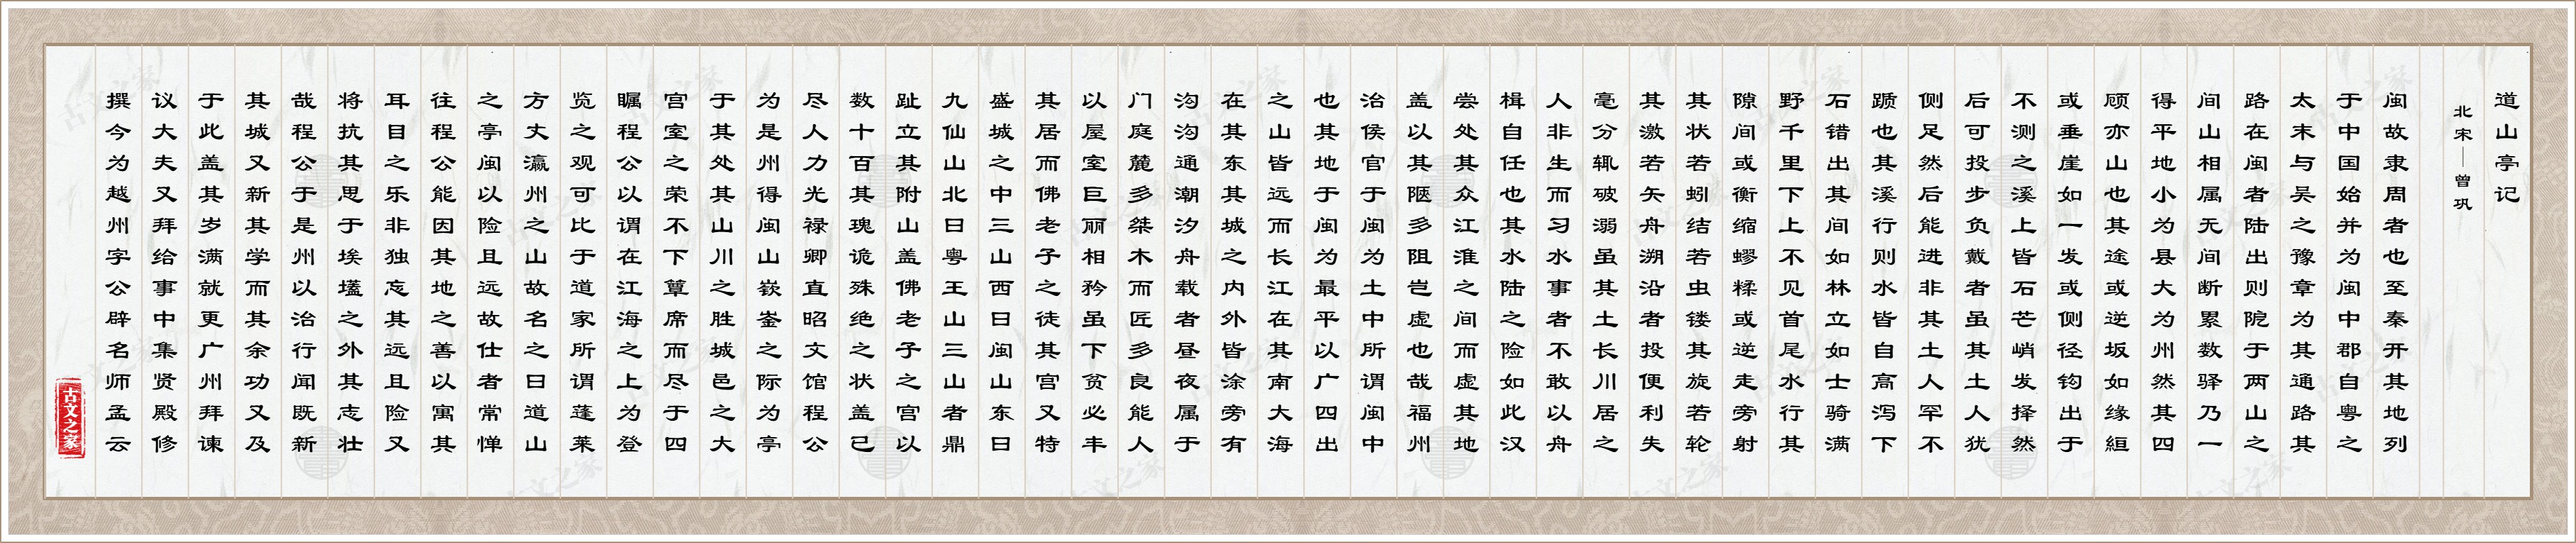 道山亭记
北宋—曾巩
闽故隶周者也至秦开其地列
于中国始并为闽中郡自粤之
太末与吴之豫章为其通路其
路在闽者陆出则阸于两山之
间山相属无间断累数驿乃一
得平地小为县大为州然其四
顾亦山也其途或逆坂如缘絙
或垂崖如一发或侧径钩出于
不测之溪上皆石芒峭发择然
后可投步负戴者虽其土人犹
侧足然后能进非其土人罕不
踬也其溪行则水皆自高泻下
石错出其间如林立如士骑满
野千里下上不见首尾水行其
隙间或衡缩蟉糅或逆走旁射
其状若蚓结若虫镂其旋若轮
其激若矢舟溯沿者投便利失
毫分辄破溺虽其土长川居之
人非生而习水事者不敢以舟
楫自任也其水陆之险如此汉
尝处其众江淮之间而虚其地
盖以其陿多阻岂虚也哉福州
治侯官于闽为土中所谓闽中
也其地于闽为最平以广四出
之山皆远而长江在其南大海
在其东其城之内外皆涂旁有
沟沟通潮汐舟载者昼夜属于
门庭麓多桀木而匠多良能人
以屋室巨丽相矜虽下贫必丰
其居而佛老子之徒其宫又特
盛城之中三山西曰闽山东曰
九仙山北曰粤王山三山者鼎
趾立其附山盖佛老子之宫以
数十百其瑰诡殊绝之状盖已
尽人力光禄卿直昭文馆程公
为是州得闽山嵚崟之际为亭
于其处其山川之胜城邑之大
宫室之荣不下簟席而尽于四
瞩程公以谓在江海之上为登
览之观可比于道家所谓蓬莱
方丈瀛州之山故名之曰道山
之亭闽以险且远故仕者常惮
往程公能因其地之善以寓其
耳目之乐非独忘其远且险又
将抗其思于埃壒之外其志壮
哉程公于是州以治行闻既新
其城又新其学而其余功又及
于此盖其岁满就更广州拜谏
议大夫又拜给事中集贤殿修
撰今为越州字公辟名师孟云
古文之家